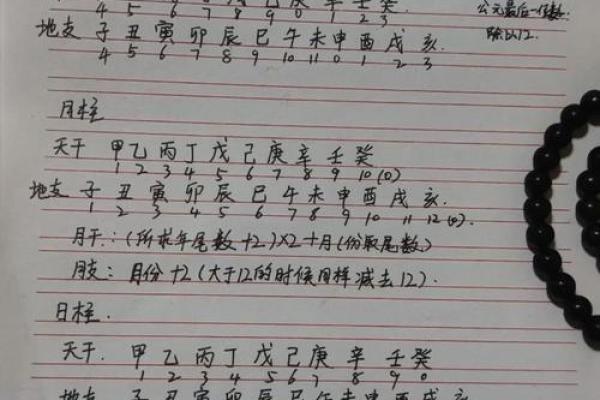 己庚辛壬癸
4 5 6 7 8 9 0 1 2 3
公元最后一位数.
地支 子 丑 寅 卯 辰 巳 午 未 申 酉 戌 亥.
4 5 6 7 8 9 10 11 0 1 2 3
除以12.
月柱
天干 甲乙丙丁戊己庚辛壬癸
1 2 3 4 5 6 7 8 9 10(0)
地支 子 丑 寅 卯 辰 巳 午 未 申 酉 戌 亥.
1 2 3 4 5 6 7 8 9 10 11 12(0).
月干.:(所求年尾数+2)×2+月(份取尾数)
月支: 月份+2(大于12的时候同样减去12).
日柱.
天干. 甲 乙 丙 丁 戊 己 庚 辛 壬 癸
1 2 3 4 5 6 7 8 9 0
地支 子 丑 寅 卯 辰 巳 午 未 申 酉 戌 亥